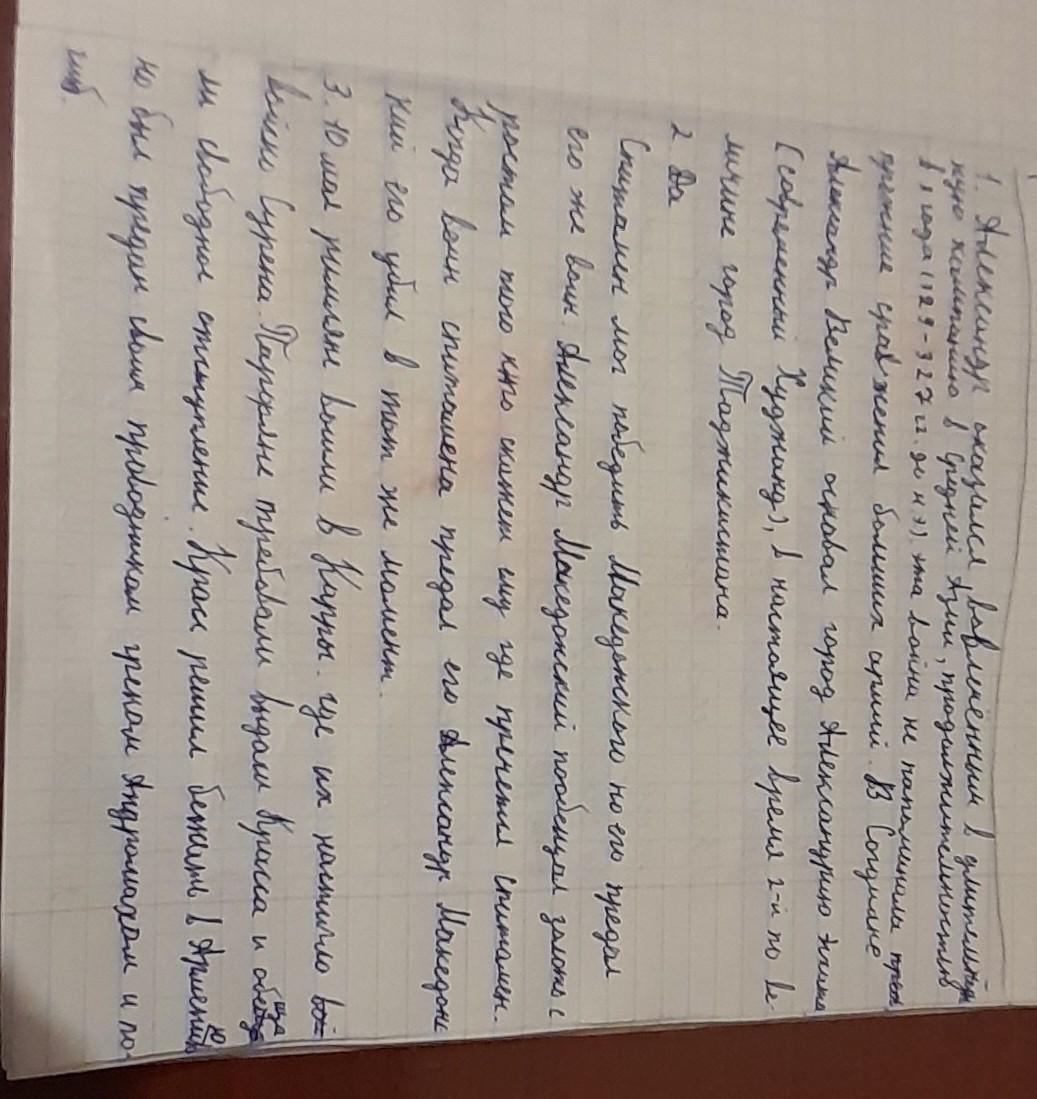 1. Александр оказался вовлечённым в длительную
кую кампанию в Средней Азии, продолжительностью
в 3 года (129-327 гг. до н.э) эта война не напоминала
прежние сражения больших армий. В Согдиане
Александр Великий основал город Александрию
(современный Худжанд), в настоящее время 2-й по ве-
личине город Таджикистана.
2 Да
Спитамен мог победить Македонского но его предал
его же воин. Александр Македонский пообещал
ростом того кто скажет ему где прячется спитамен.
Когда воин спитамена предал его Александр Македонс
кий его убил в тот же момент.
3. 10 мая римляне вошли в Карры. где их настигло вой
войско Сурена. Парфяне требовали выдали Красса и обеща
ли свободное отступление. Красс решил бежать в Армению
но был предан своим проводником греком Андромахом и по-
гиб.